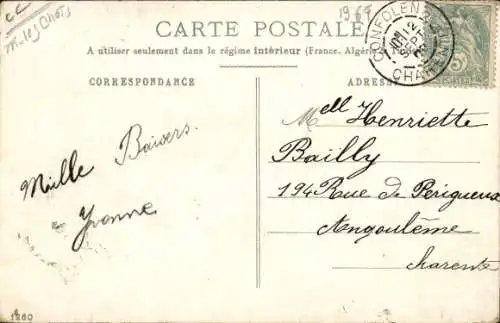 CC
1969
CARTE POSTALE
A utiliser seulement dans le régime intérieur (France, Algérie &
CONFOLENS
CHARENTE
CORRESPONDANCE
ADRESSE
Mell Henriette
Bailly
194 Rue de Perigueux
Angoulême
charente
Mille Baisers
Yvonne
1260